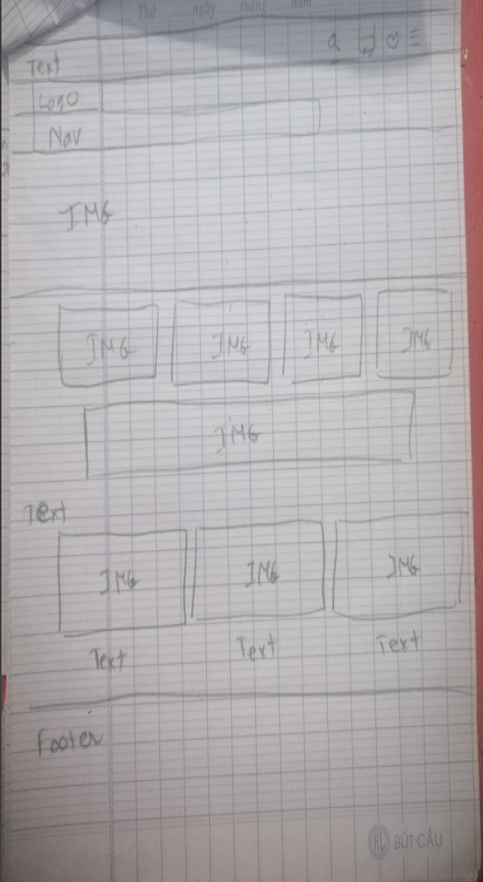 Thứ ngày tháng năm
Text
Logo
Nav
IMG
IMG IMG IMG IMG
IMG
Text
IMG IMG IMG
Text Text Text
Footer
HL BÚT CÂU